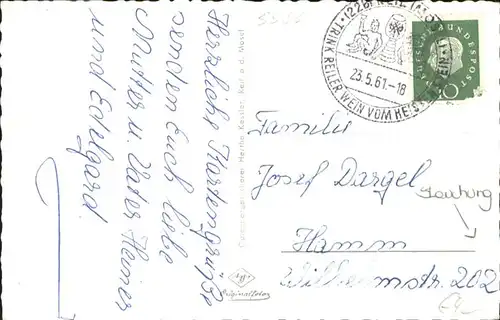 Herzliche Kartengrüße
senden Euch liebe
Mutter u. Vater Heiner
und Edelgard.
Hertha Kessler, Reil a. d. Mosel
Originalfoto
TRINK REILER WEIN VOM HEISSEN STEIN
23.5.61.-18
DEUTSCHE BUNDESPOST
10
Familie
Josef Dargel
Hamm
Wilhelmstr. 202